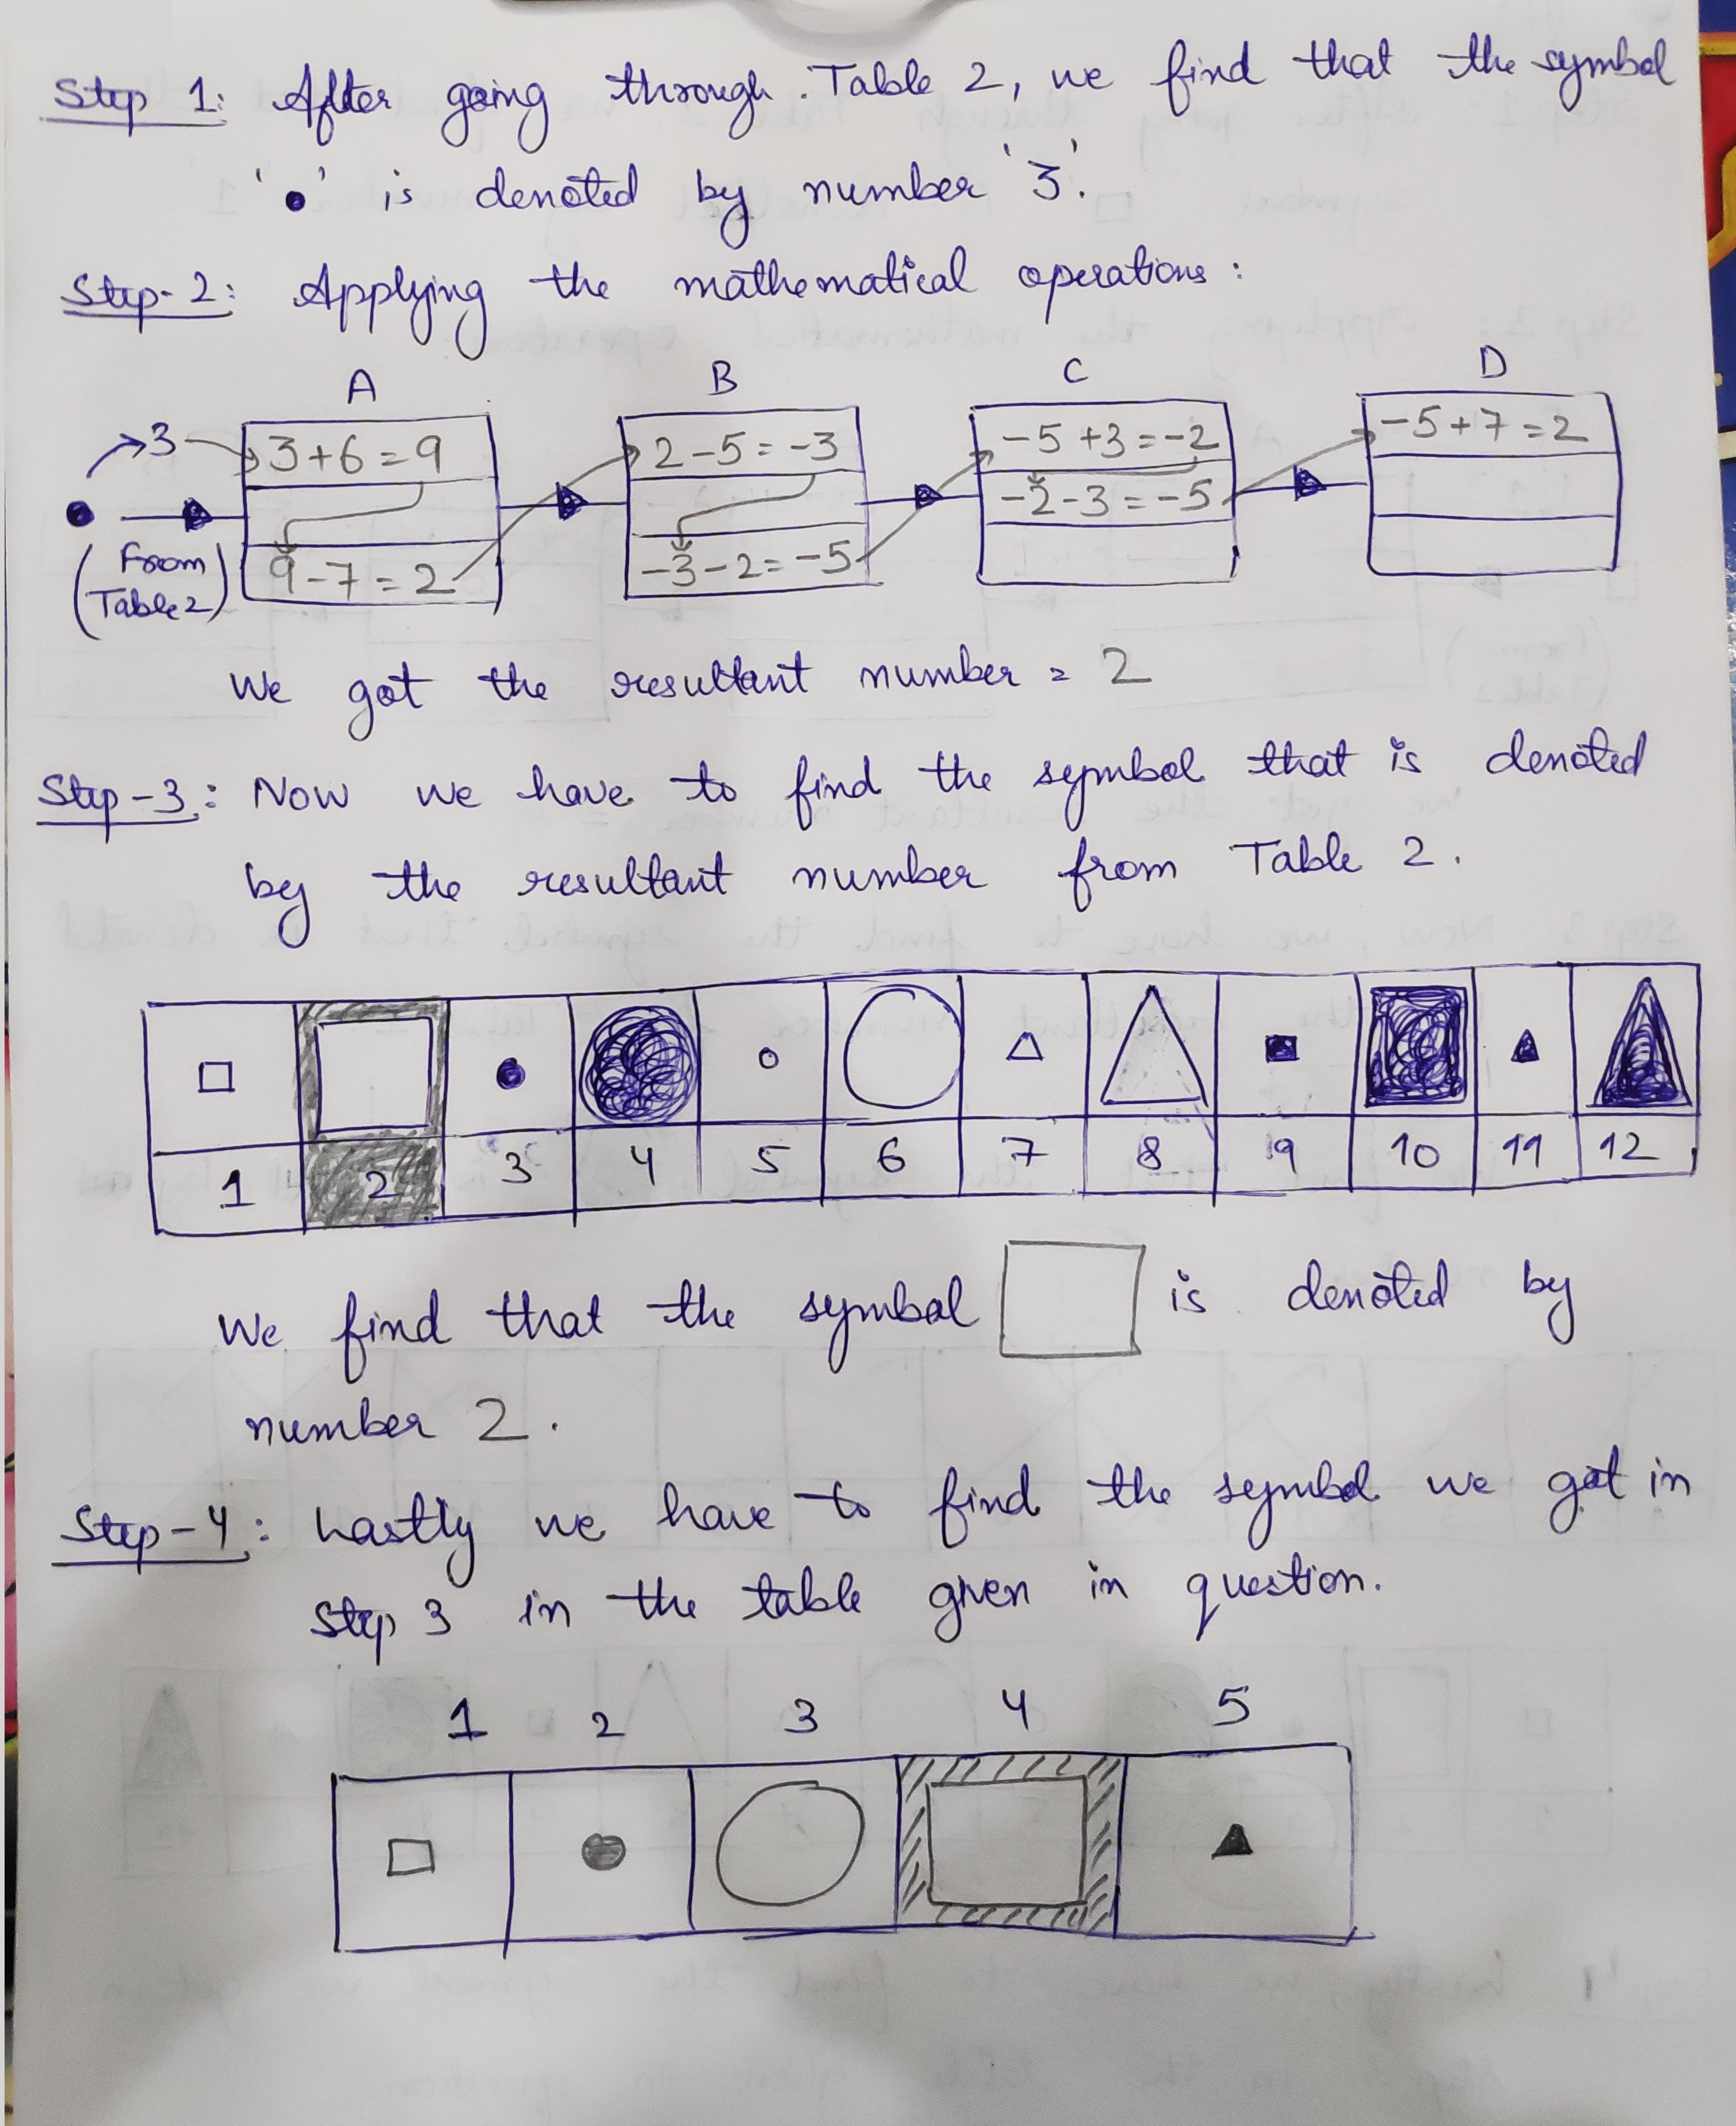 Step 1: After going through Table 2, we find that the symbol
'●' is denoted by number '3'.
Step-2: Applying the mathematical operations:
A B C D
3 3+6=9 2-5=-3 -5+3=-2 -5+7=2
-2-3=-5
(From Table 2) 9-7=2 -3-2=-5
We got the resultant number = 2
Step-3: Now we have to find the symbol that is denoted
by the resultant number from Table 2.
1 2 3 4 5 6 7 8 9 10 11 12
We find that the symbol □ is denoted by
number 2.
Step-4: Lastly we have to find the symbol we got in
step 3 in the table given in question.
1 2 3 4 5